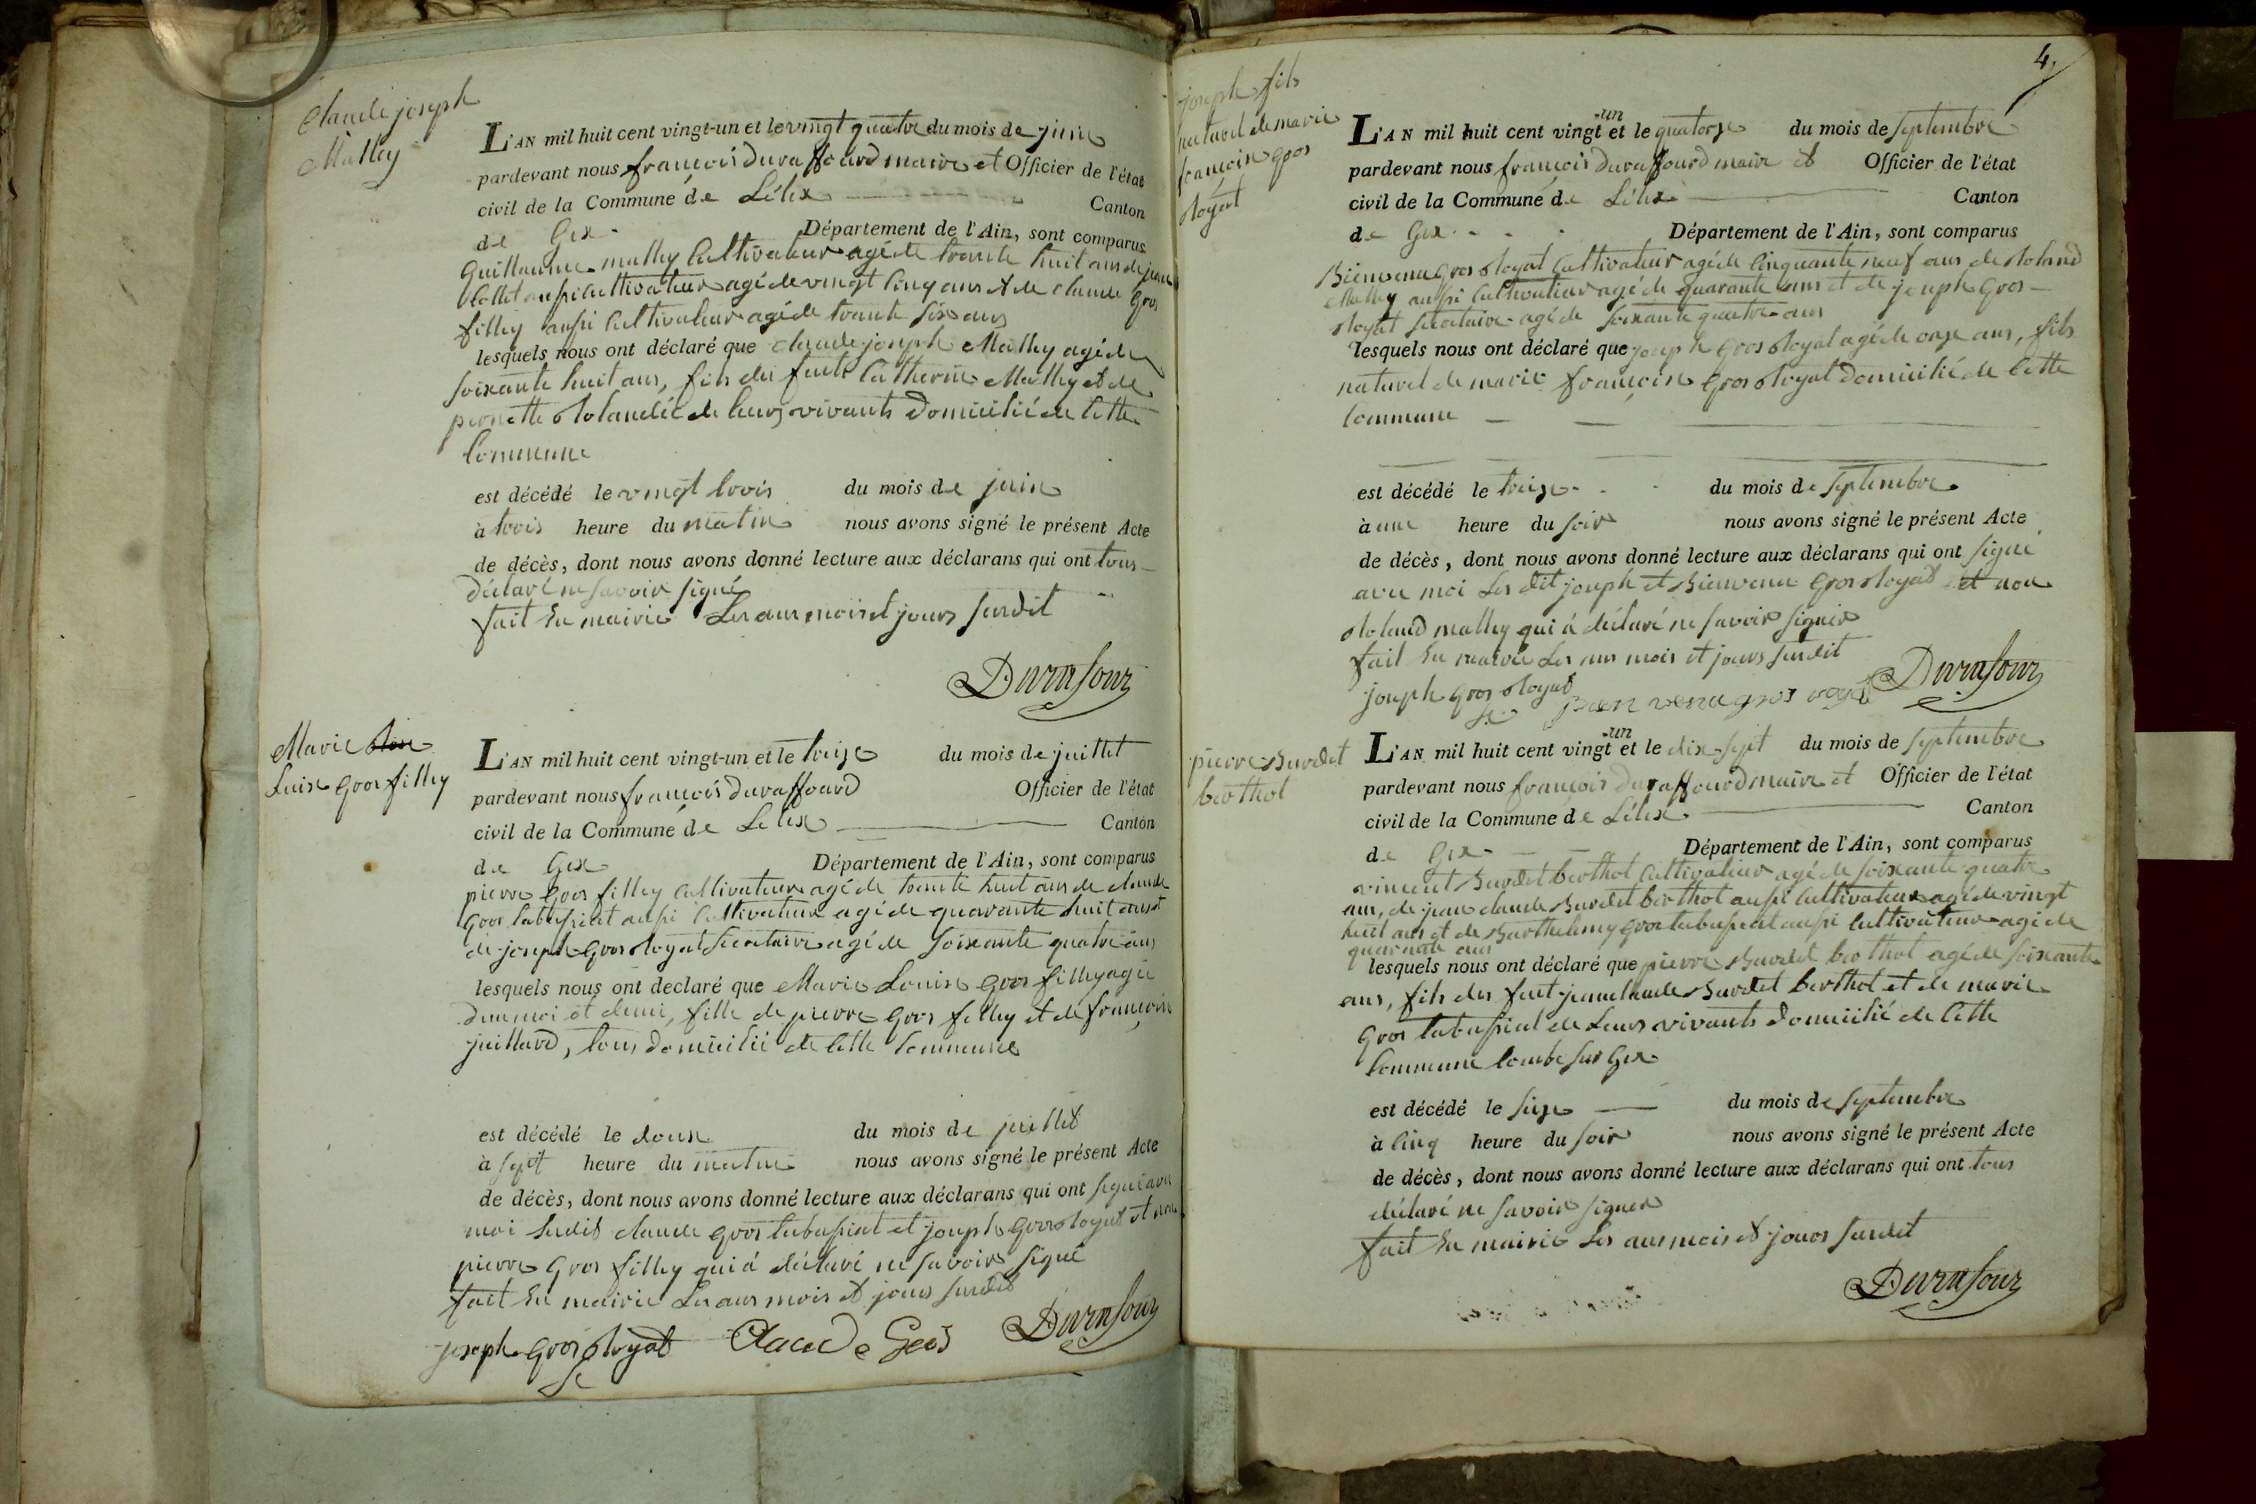 Claude joseph
Mathey
L'AN mil huit cent vingt-un et le vingt quatre du mois de juin
pardevant nous françois Duraffourd maire et Officier de l'état
civil de la Commune de Lélex Canton
de Gex Département de l'Ain, sont comparus
Guillaume mathey Cultivateur agé de trante huit ans de jean
aussi Cultivateur agé de vingt Cinq ans et de Claude Gros
filley aussi Cultivateur agé de trante six ans
lesquels nous ont déclaré que claude joseph Mathey agé de
soixante huit ans, fils des Catherin Mathey et de
de leurs vivants Domicilié de Cette
Commune
est décédé le vingt trois du mois de juin
à trois heure du matin nous avons signé le présent Acte
de décès, dont nous avons donné lecture aux déclarans qui ont tous
déclaré ne savoir signé
fait En mairie Les ans mois et jours susdit
Durafour
Marie
Luise Gros filley
L'AN mil huit cent vingt-un et le treize du mois de juillet
pardevant nous françois Duraffourd Officier de l'état
civil de la Commune de Lélex Canton
de Gex Département de l'Ain, sont comparus
pierre Gros filley Cultivateur agé de trante huit ans de claude
Gros tabussiat aussi Cultivateur agé de quarante huit ans et
de joseph Gros Royat Secretaire agé de soixante quatre ans
lesquels nous ont declaré que Marie Louise Gros filley agée
d'un moi et demi, fille de pierre Gros filley et de françoise
juillard, tous domicilié de Cette Commune
est décédé le douze du mois de juillet
à sept heure du matin nous avons signé le présent Acte
de décès, dont nous avons donné lecture aux déclarans qui ont signé avec
moi Ledit claude Gros tabussiat et joseph Gros Royat et non
pierre Gros filley qui à déclaré ne savoir signé
fait En mairie Les ans mois et jours susdit
joseph Gros Royat Claude Gros Durafour
4
joseph fils
naturel de marie
françoise Gros
Royat
L'AN mil huit cent vingt-un et le quatorze du mois de Septembre
pardevant nous françois Duraffourd maire et Officier de l'état
civil de la Commune de Lélex Canton
de Gex Département de l'Ain, sont comparus
Bienvenu Gros Royat Cultivateur agé de Cinquante neuf ans de Roland
Mathey aussi Cultivateur agé de quarante ans et de joseph Gros
Royat Secretaire agé de soixante quatre ans
lesquels nous ont déclaré que joseph Gros Royat agé de onze ans, fils
naturel de marie françoise Gros Royat Domicilié de Cette
Commune
est décédé le treize du mois de Septembre
à une heure du soir nous avons signé le présent Acte
de décès, dont nous avons donné lecture aux déclarans qui ont signé
avec moi Les dit joseph et Bienvenu Gros Royat et non
Roland mathey qui à déclaré ne savoir signer
fait En mairie Les ans mois et jours susdit
joseph Gros Royat Bien venu gros royat Durafour
pierre Burdet
berthot
L'AN mil huit cent vingt-un et le dix-sept du mois de Septembre
pardevant nous françois Duraffourd maire et Officier de l'état
civil de la Commune de Lélex Canton
de Gex Département de l'Ain, sont comparus
vincent Burdet berthot Cultivateur agé de soixante quatre
ans, de jean claude Burdet berthot aussi Cultivateur agé de vingt
huit ans et de Barthelemy Gros tabussiat aussi Cultivateur agé de
quarante ans
lesquels nous ont déclaré que pierre Burdet berthot agé de soixante
ans, fils des fuet jean claude Burdet berthot et de marie
Gros tabussiat de Leurs vivants Domicilié de Cette
Commune Combe sur Gex
est décédé le seize du mois de Septembre
à Cinq heure du soir nous avons signé le présent Acte
de décès, dont nous avons donné lecture aux déclarans qui ont tous
déclaré ne savoir signer
fait En mairie Les ans mois et jours susdit
Durafour